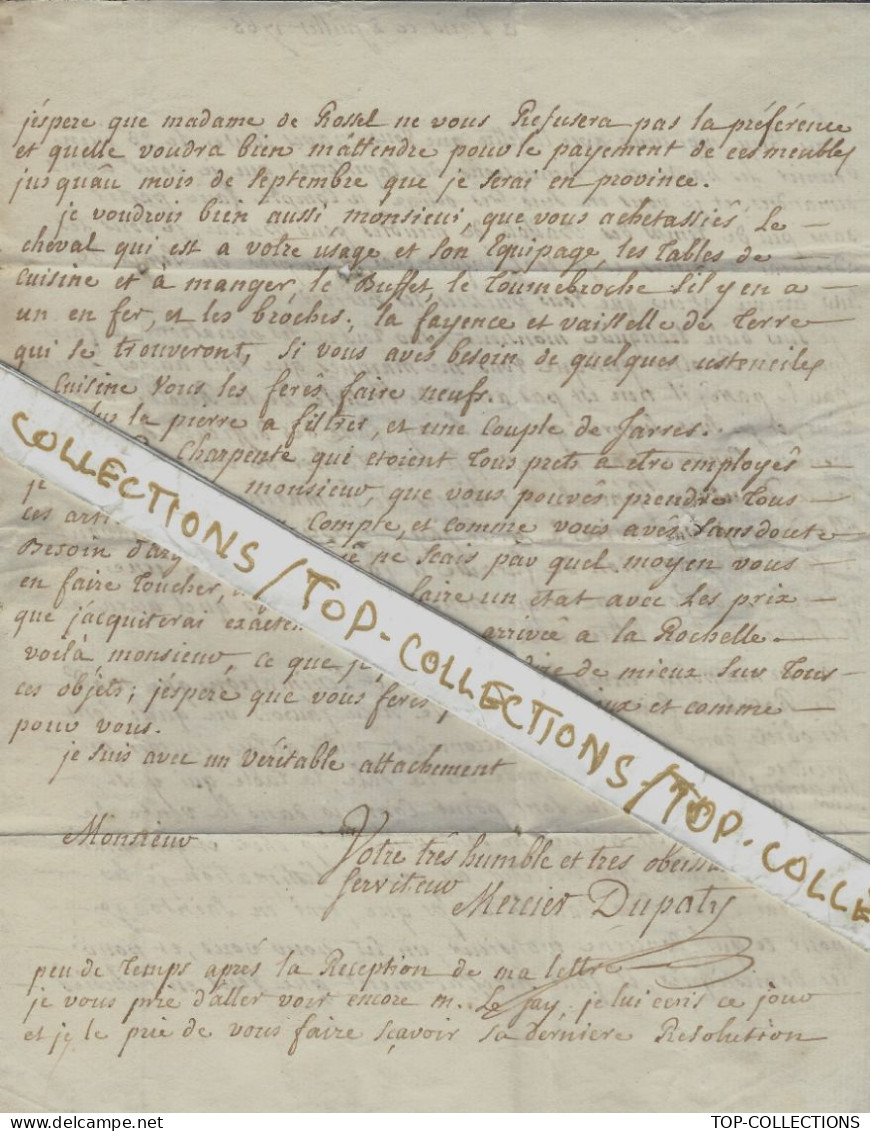 j'éspere que madame de Rossel ne vous Refusera pas la préférence
et quelle voudra bien m'attendre pour le payement de ces meubles
jusqu'au mois de Septembre que je serai en province.
je voudrois bien aussi monsieur, que vous achetassiés le
cheval qui est a votre usage et son Equipage, les Tables de
Cuisine et à manger, le Buffet, le Tournebroche s'il y en a
un en fer, et les broches, la fayence et vaisselle de Terre
qui se trouveront, si vous avés besoin de quelques ustenciles
Cuisine vous les ferés faire neufs.
la pierre a filtrer, et une Couple de Jarres.
Charpente qui étoient Tous prets a etre employés
je monsieur, que vous pouvés prendre Tous
ces arti Compte, et comme vous avés sans doute
Besoin d'arg je ne scais par quel moyen vous
en faire Toucher, faire un état avec les prix
que j'acquiterai exacte arrivée a la Rochelle.
voilà monsieur, ce que je dire de mieux sur Tous
ces objets; j'éspere que vous ferés, mieux et comme
pour vous.
je suis avec un véritable attachement
Monsieur
Votre très humble et tres obeissa
Serviteur
Mercier Dupaty
peu de Temps après la Reception de ma lettre
je vous prie d'aller voir encore m. Le Jay, je lui ecris ce jour
et je le prie de vous faire sçavoir sa derniere Résolution
COLLECTIONS / TOP-COLLECTIONS / TOP-COLLE
TOP-COLLECTIONS